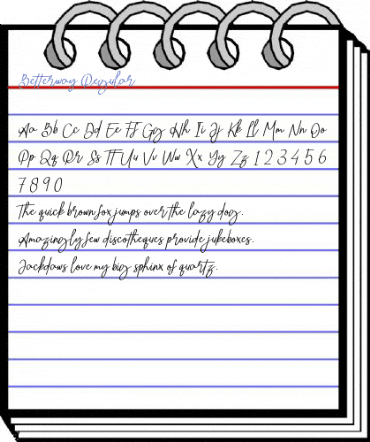 Betterway Regular
Aa Bb Cc Dd Ee Ff Gg Hh Ii Jj Kk Ll Mm Nn Oo
Pp Qq Rr Ss Tt Uu Vv Ww Xx Yy Zz 1 2 3 4 5 6
7 8 9 0
The quick brown fox jumps over the lazy dog.
Amazingly few discotheques provide jukeboxes.
Jackdaws love my big sphinx of quartz.